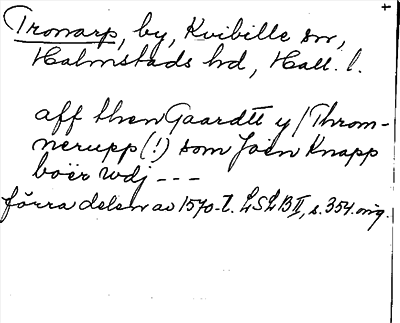 Tronarp, by, Kvibille sn,
Halmstads hd, Hall. l.
aff then Gaardtt y / Throm-
nerupp (!) som Joen Knapp
boer wdj ---
förra delen av 1570-t. LSLB II, s. 354. orig.